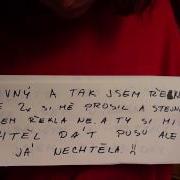 VNÝ A TAK JSEM ŘEKN
E 2x SI MĚ PROSIL A STEJN
EM ŘEKLA NE. A TY SI MI
HTĚL DÁT PUSU ALE
JÁ NECHTĚLA.